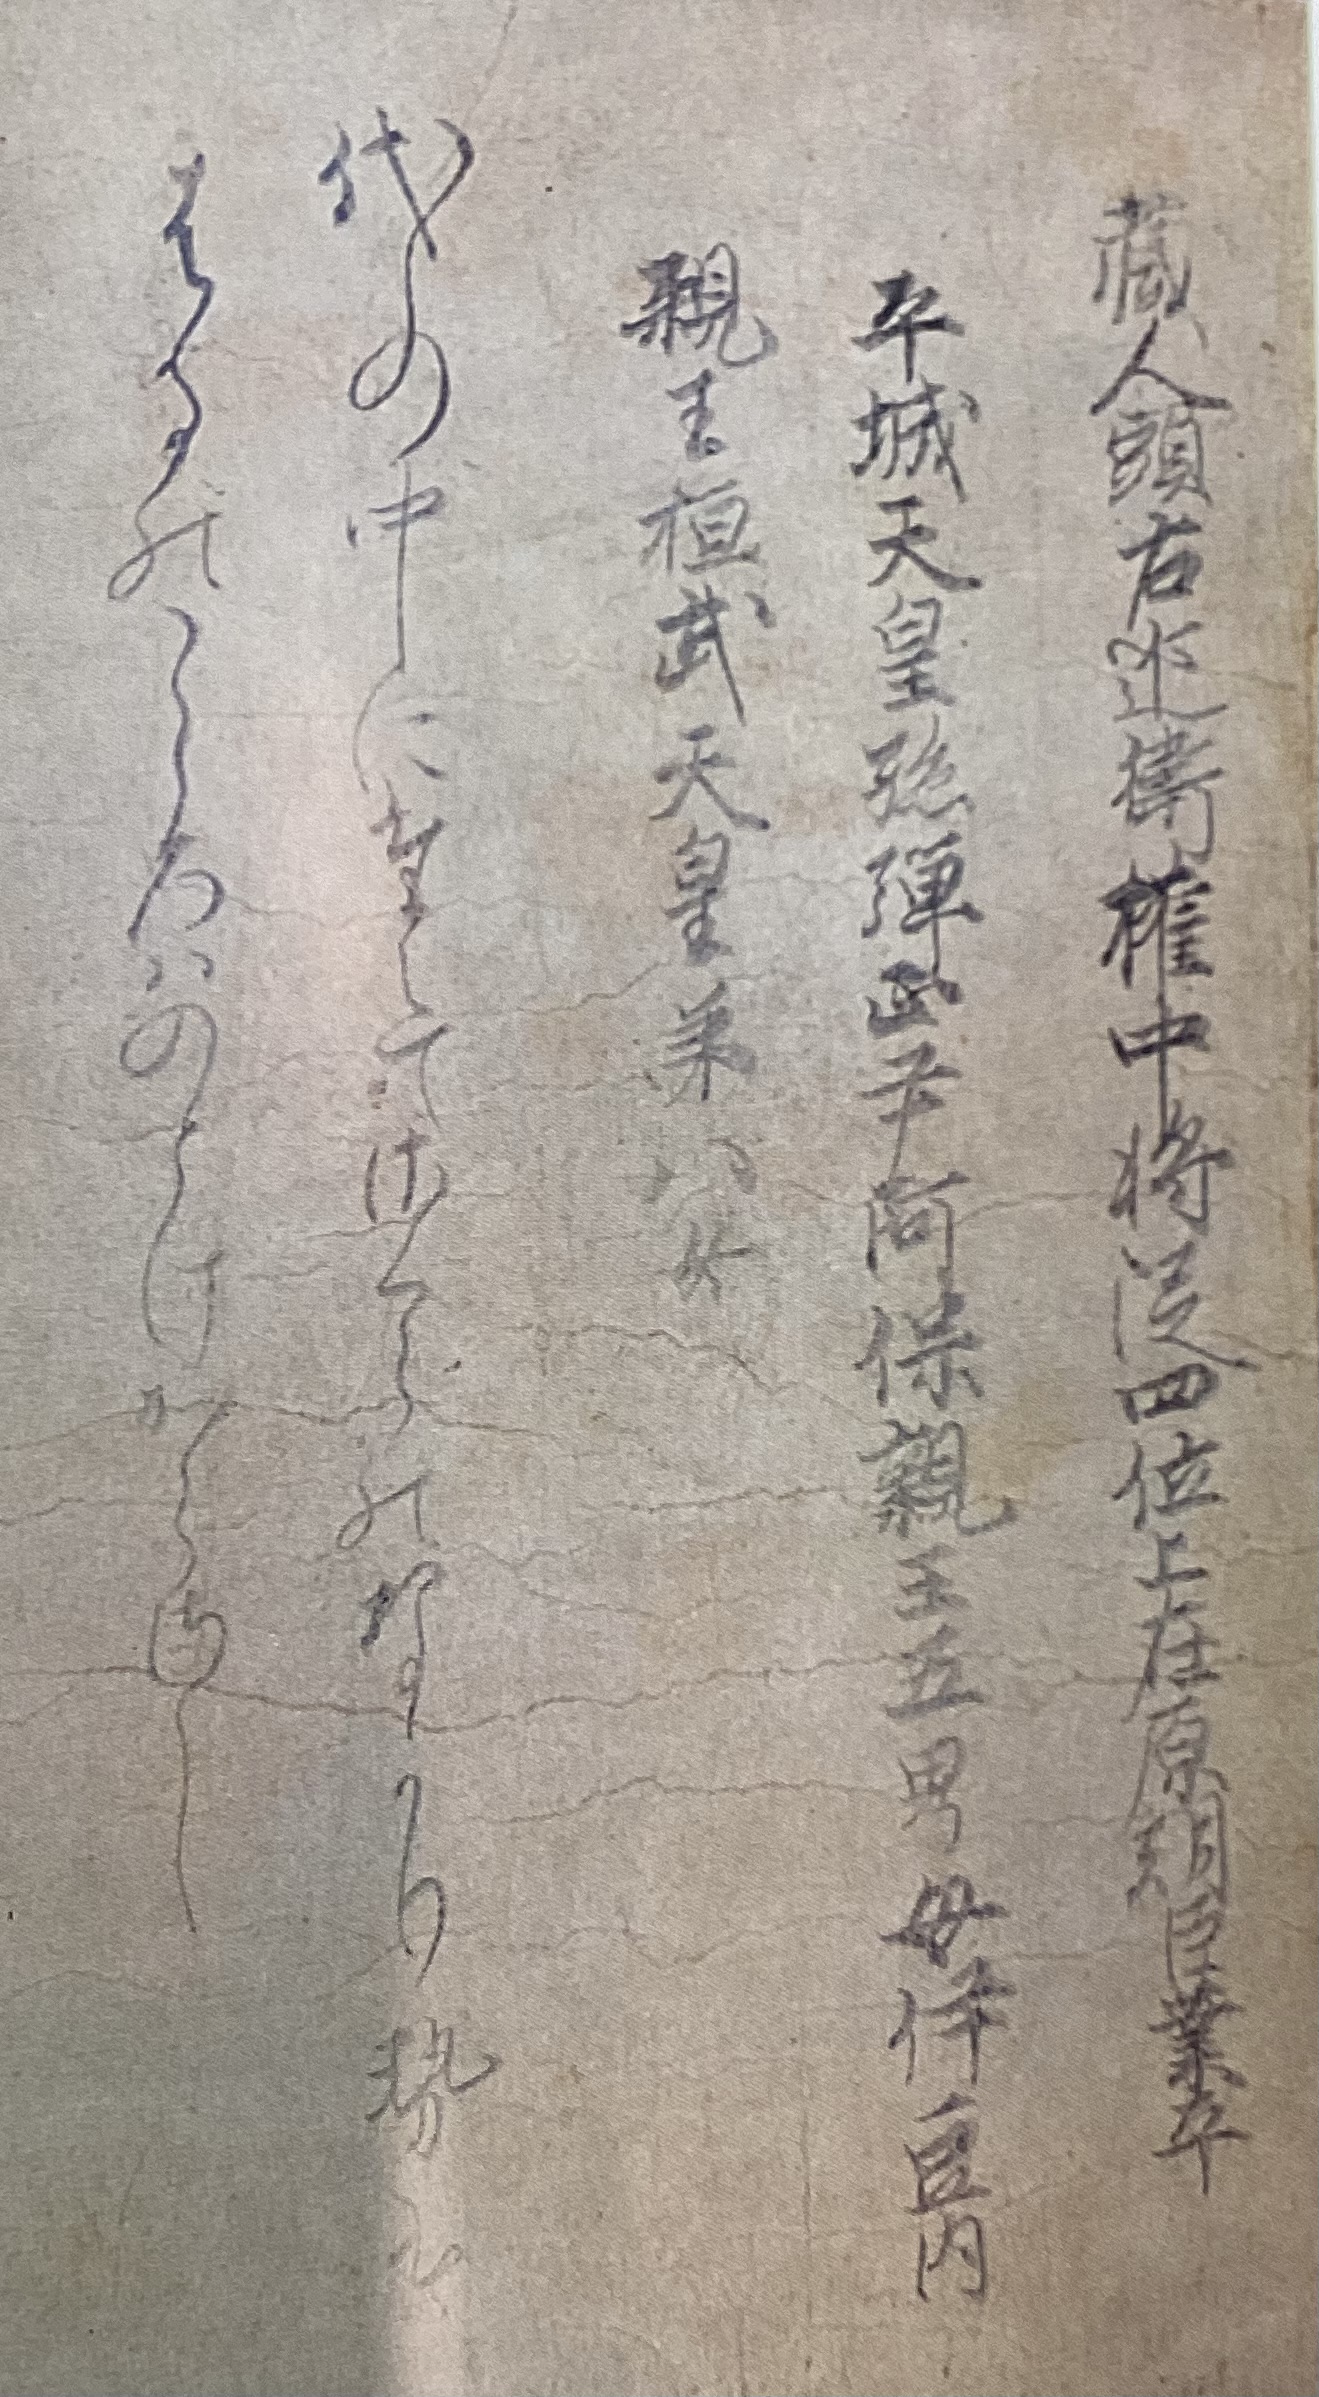 蔵人頭右近衛権中将従四位上在原朝臣業平
平城天皇孫弾正尹阿保親王五男母伊豆内
親王桓武天皇第八女
代の中にたえてさくらのなかり勢は
はるのこゝろはのとけからまし